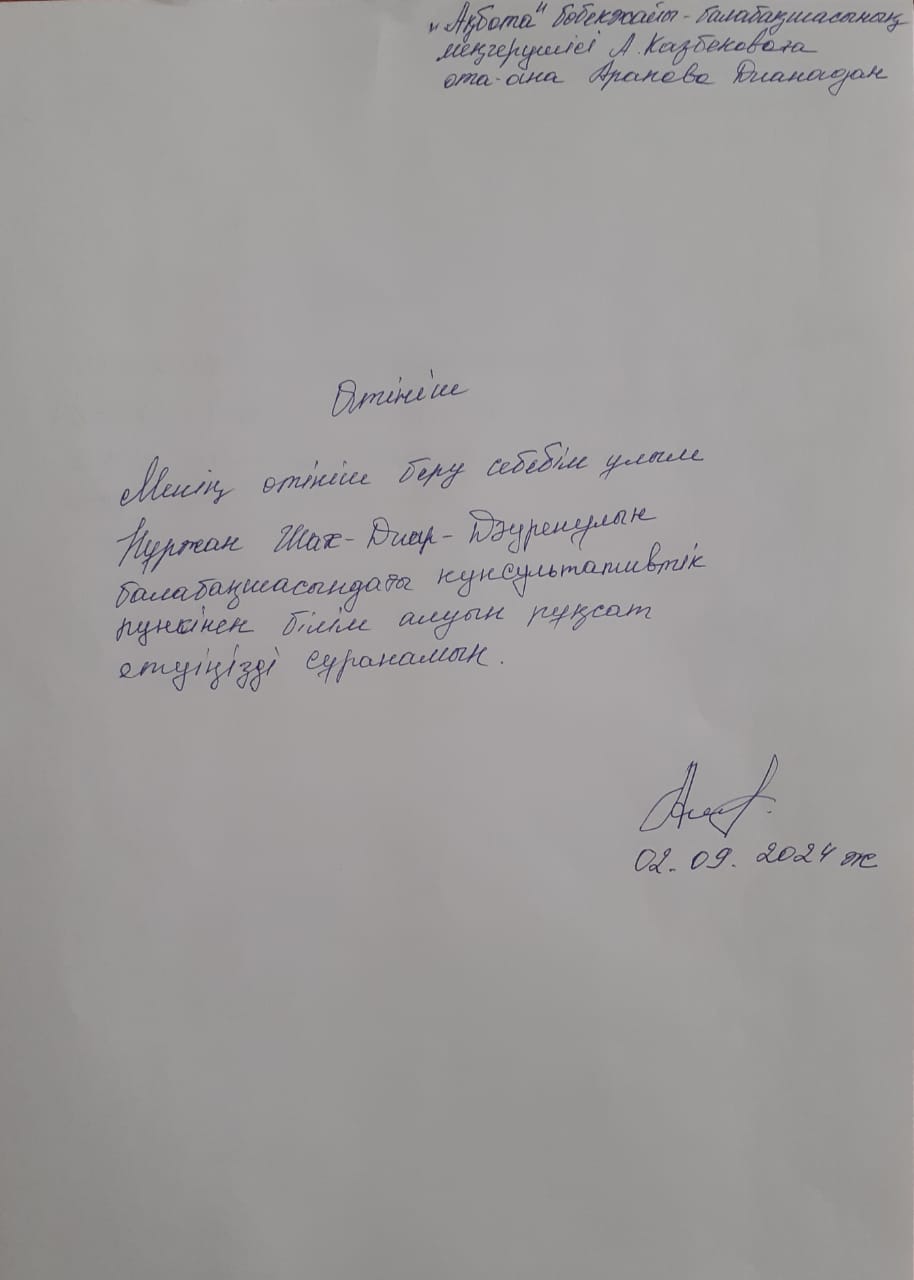 "Ақбота" бөбекжайы-балабақшасының
меңгерушісі А.Казбековаға
ата-ана Арапова Дианадан
Өтініш
Менің өтініш беру себебім ұлым
Нұржан Шах-Диар-Дәуренұлын
балабақшасындағы кунсультативтік
пункінен білім алуын рұқсат
етуіңізді сұранамын.
02.09.2024 ж